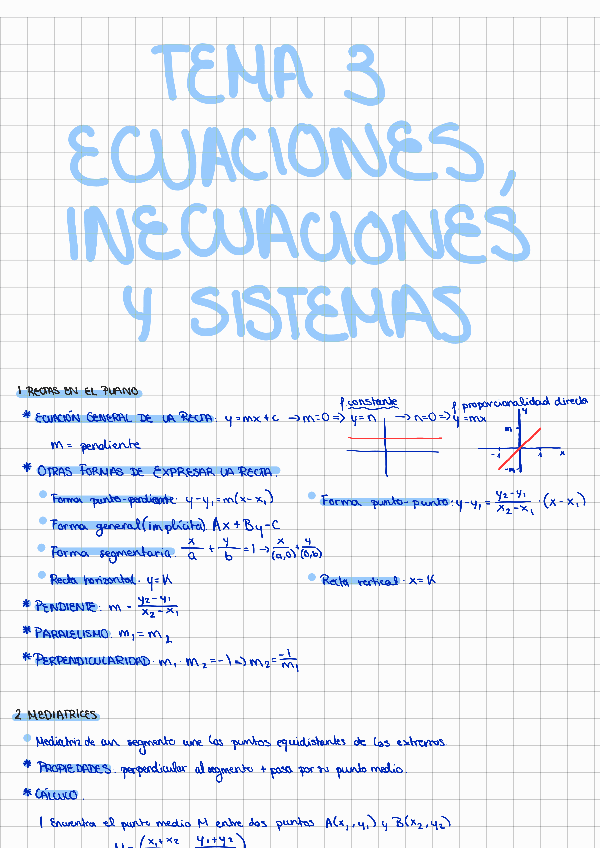 TEMA 3
ECUACIONES,
INECUACIONES
Y SISTEMAS
1 RECTAS EN EL PLANO
* ECUACIÓN GENERAL DE LA RECTA: y=mx+c → m=0 => y=n → n=0 => y=mx
f constante
f proporcionalidad directa
y
m
-1
1
x
-m
m = pendiente
* OTRAS FORMAS DE EXPRESAR LA RECTA:
Forma punto-pendiente: y-y₁=m(x-x₁)
Forma punto-punto: y-y₁ = (y₂-y₁)/(x₂-x₁) · (x-x₁)
Forma general (implícita): Ax+By=C
Forma segmentaria: x/a + y/b = 1 → x/(a,0) + y/(0,b)
Recta horizontal: y=K
Recta vertical: x=K
* PENDIENTE: m = (y₂-y₁)/(x₂-x₁)
* PARALELISMO: m₁=m₂
* PERPENDICULARIDAD: m₁·m₂=-1 => m₂=-1/m₁
2 MEDIATRICES
Mediatriz de un segmento une los puntos equidistantes de los extremos.
* PROPIEDADES: perpendicular al segmento + pasa por su punto medio.
* CÁLCULO:
1 Encuentra el punto medio M entre dos puntos A(x₁,y₁) y B(x₂,y₂)